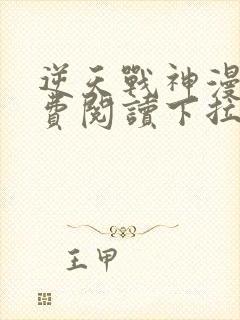 逆天戰神漫
費閱讀下拉
王甲